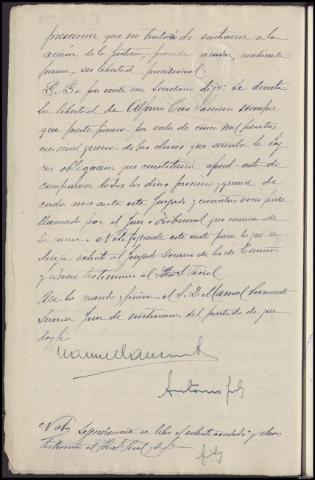 presumir que no tratará de sustraerse a la
acción de la justicia procede acordar, mediante
fianza, su libertad provisional
S. S. por ante mi Secretario dijo: Se decreta
la libertad de siempre
que preste fianza por valor de cinco mil pesetas
en cualquiera de las clases que señala la ley
con obligación que constituirá apud-acta de
comparecer todos los días primero y quince de
cada mes ante este Juzgado y cuantas veces fuere
llamado por el Juez o Tribunal que conozca de
la causa. Notifíquese este auto para lo que se
dirija exhorto al Juzgado Decano de los de
y elévese testimonio al Fiscal
Así lo mandó y firma el S. D. Manuel
Juez de instrucción del partido de que
doy fe
Antonio
Nota Seguidamente se libró el exhorto acordado y elevó
testimonio al Fiscal doy fe